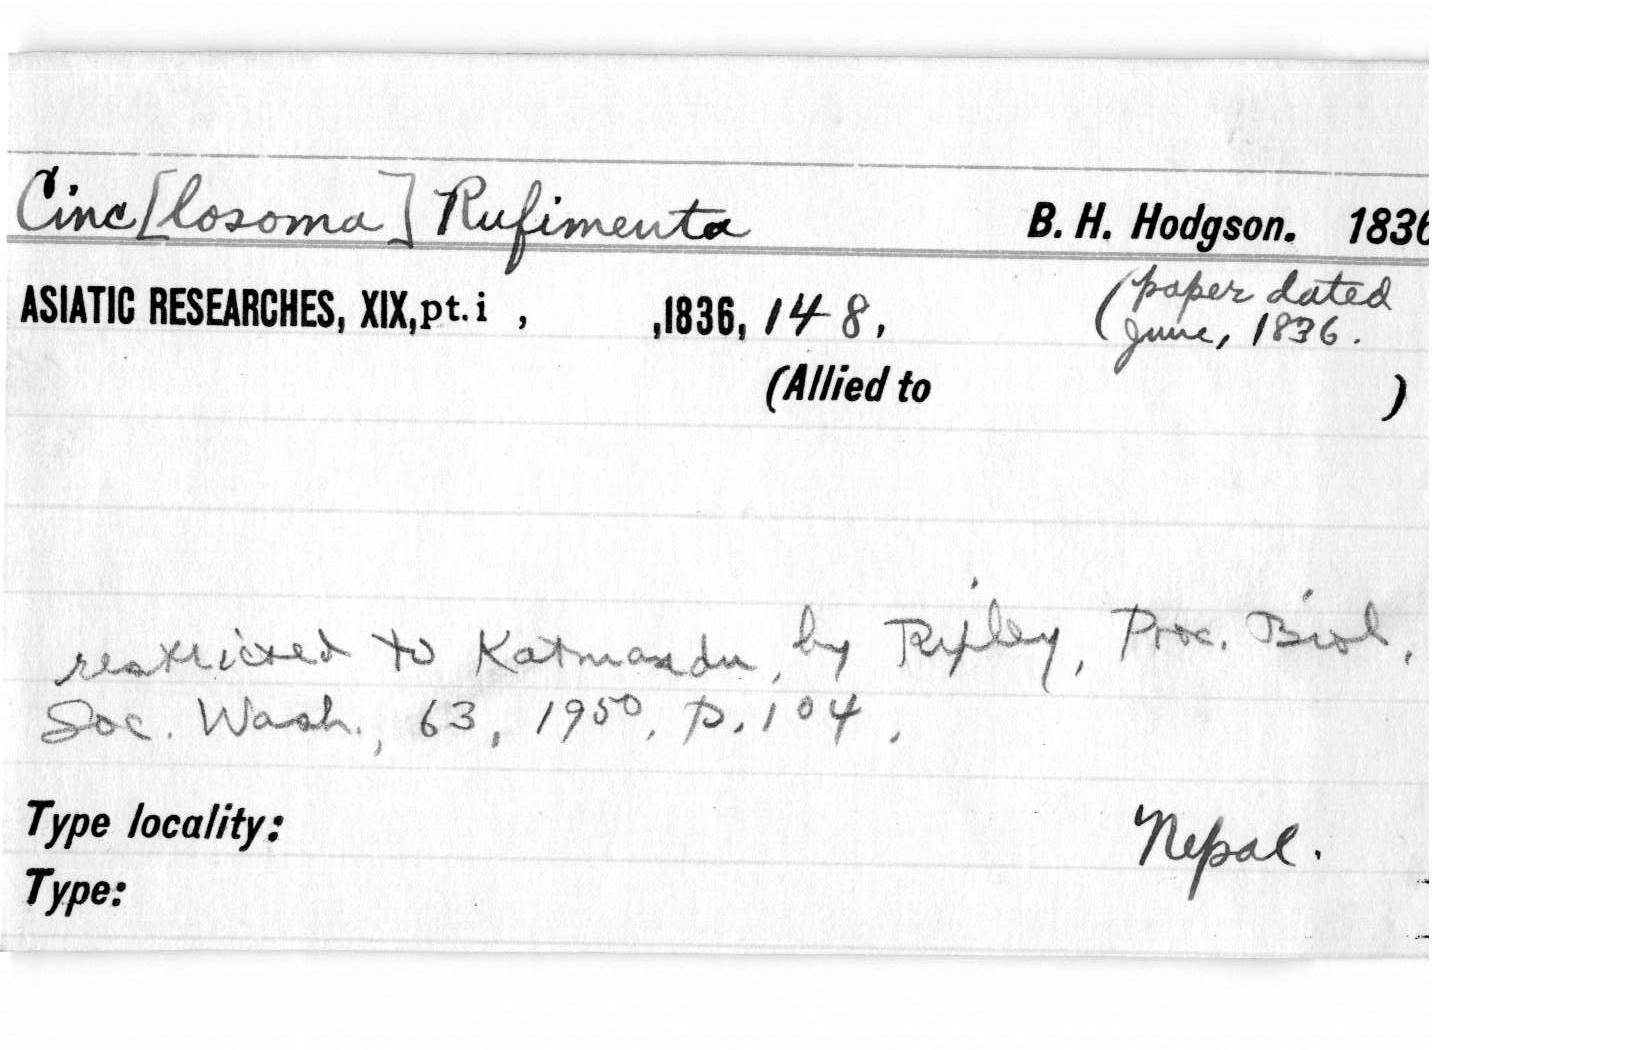 Cinc[losoma] Rufimenta B. H. Hodgson. 1836
ASIATIC RESEARCHES, XIX, pt. i , ,1836, 148, (paper dated
June, 1836.
(Allied to )
restricted to Katmandu, by Ripley, Proc. Biol.
Soc. Wash., 63, 1950, p. 104.
Type locality: Nepal.
Type: